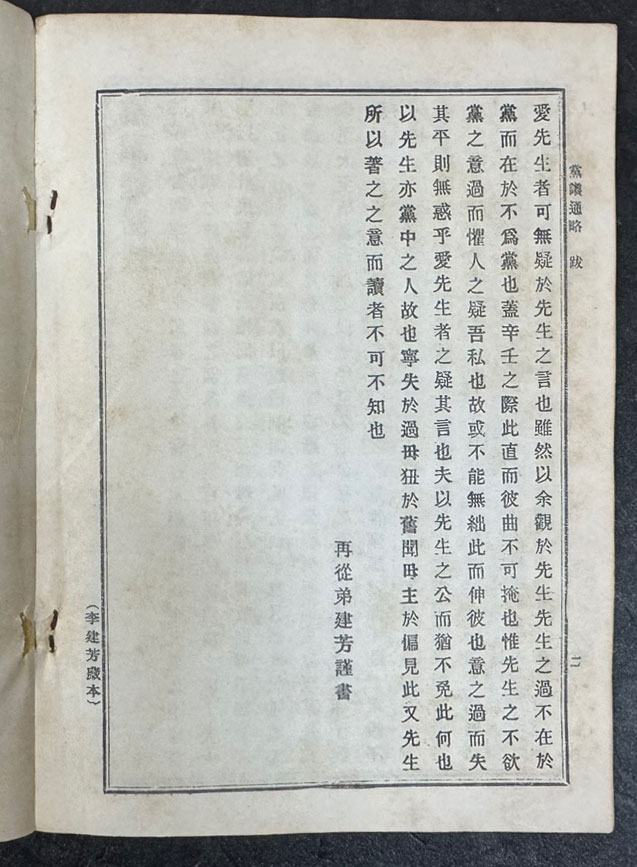 黨議通略 跋
二
愛先生者可無疑於先生之言也雖然以余觀於先生先生之過不在於
黨而在於不爲黨也蓋辛壬之際此直而彼曲不可掩也惟先生之不欲
黨之意過而懼人之疑吾私也故或不能無絀此而伸彼也意之過而失
其平則無惑乎愛先生者之疑其言也夫以先生之公而猶不免此何也
以先生亦黨中之人故也寧失於過毋狃於舊聞毋主於偏見此又先生
所以著之之意而讀者不可不知也
再從弟建芳謹書
(李建芳藏本)